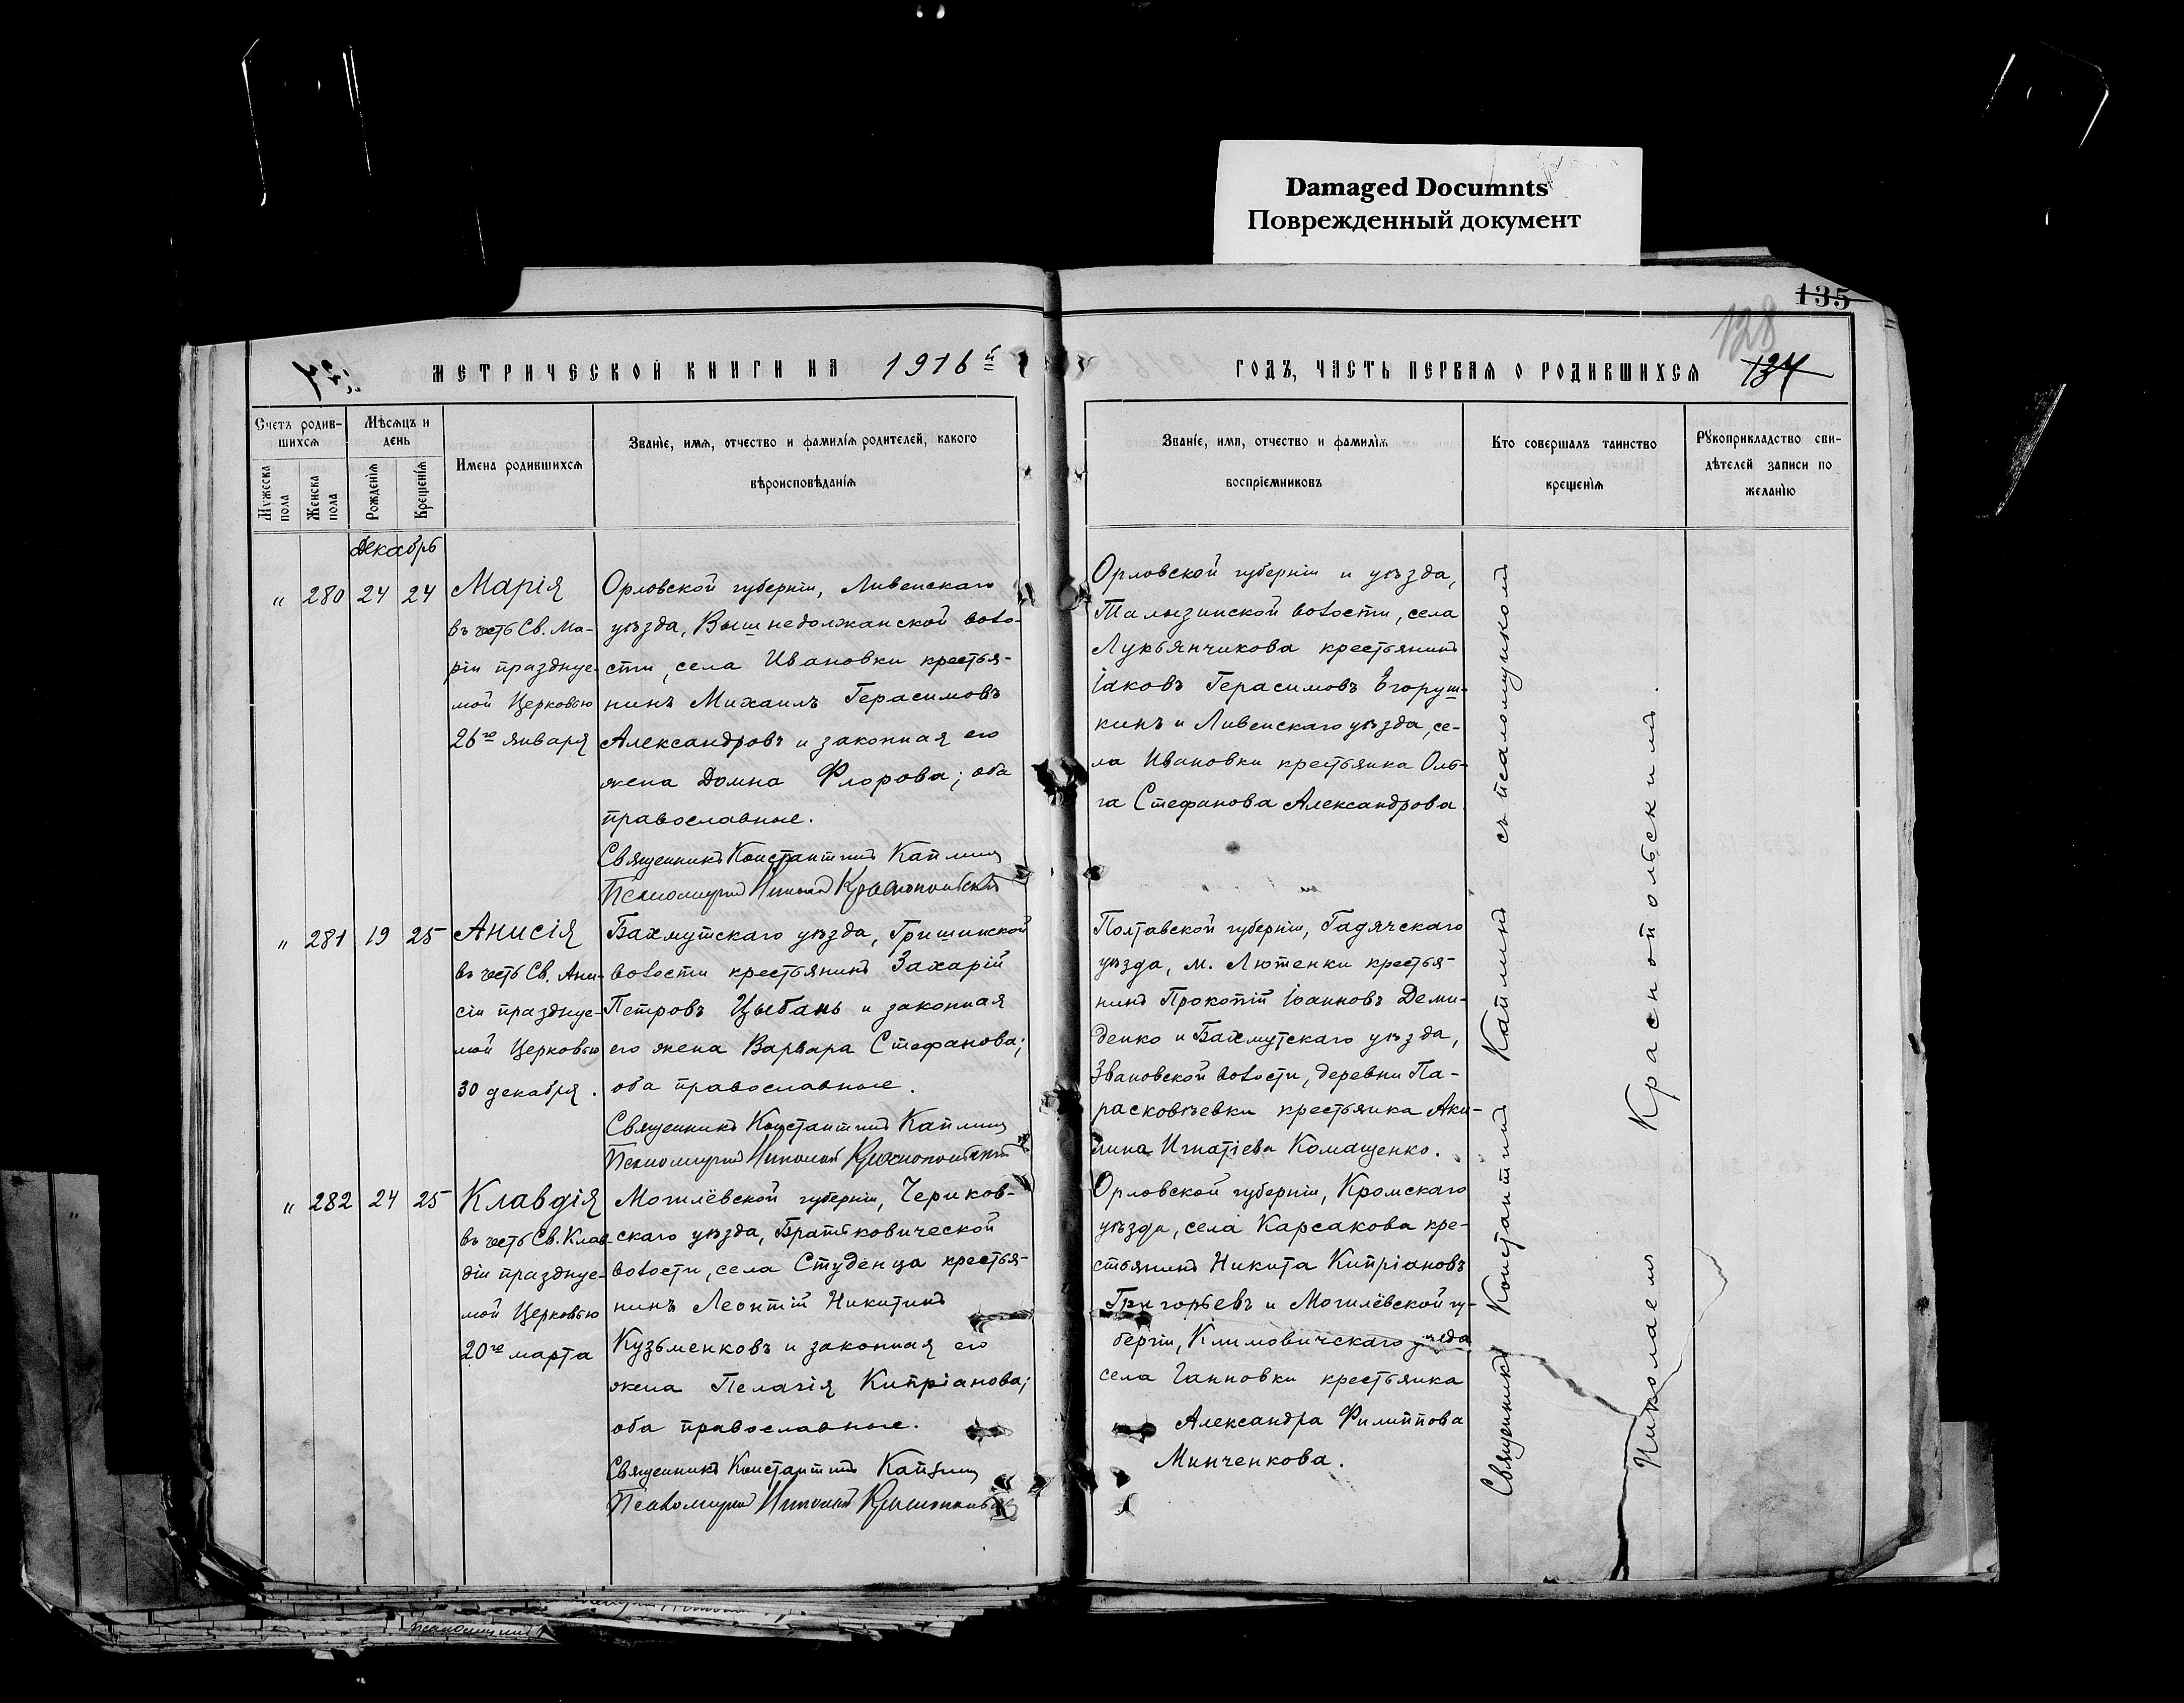 Damaged Documnts
Поврежденный документ
135
128
134
МЕТРИЧЕСКОЙ КНИГИ НА 1916й
ГОДЪ, ЧАСТЬ ПЕРВАЯ О РОДИВШИХСЯ
Счетъ родив-
шихся
Мужеска пола
Женска пола
Мѣсяцъ и
день
Рожденія
Крещенія
Имена родившихся
Званіе, имя, отчество и фамилія родителей, какого
вѣроисповѣданія
Званіе, имя, отчество и фамилія
воспріемниковъ
Кто совершалъ таинство
крещенія
Рукоприкладство сви-
дѣтелей записи по
желанію
Декабрь
" 280 24 24
Марія
въ честь Св. Ма-
ріи празднуе-
мой Церковью
26го января
Орловской губерніи, Ливенскаго
уѣзда, Вышнедолжанской воло-
сти, села Ивановки крестья-
нинъ Михаилъ Герасимовъ
Александровъ и законная его
жена Домна Флорова; оба
православные.
Священникъ Константинъ Каплинъ
Псаломщикъ Николай Краснопольскій
Орловской губерніи и уѣзда,
Талызинской волости, села
Лукьянчикова крестьянинъ
Іаковъ Герасимовъ Егоруш-
кинъ и Ливенскаго уѣзда, се-
ла Ивановки крестьянка Оль-
га Стефанова Александрова
" 281 19 25
Анисія
въ честь Св. Ани-
сіи празднуе-
мой Церковью
30 декабря.
Бахмутскаго уѣзда, Гришинской
волости крестьянинъ Захарій
Петровъ Цыбань и законная
его жена Варвара Стефанова;
оба православные.
Священникъ Константинъ Каплинъ
Псаломщикъ Николай Краснопольскій
Полтавской губерніи, Гадячскаго
уѣзда, м. Лютенки крестья-
нинъ Прокопій Іоанновъ Деми-
денко и Бахмутскаго уѣзда,
Звановской волости, деревни Па-
расковѣевки крестьянка Аки-
лина Игнатіева Комащенко.
" 282 24 25
Клавдія
въ честь Св. Клав-
діи празднуе-
мой Церковью
20го марта
Могилёвской губерніи, Чериков-
скаго уѣзда, Братьковической
волости, села Студенца крестья-
нинъ Леонтій Никитинъ
Кузьменковъ и законная его
жена Пелагія Кипріанова;
оба православные.
Священникъ Константинъ Каплинъ
Псаломщикъ Николай Краснопольскій
Орловской губерніи, Кромскаго
уѣзда, села Карсакова кре-
стьянинъ Никита Кипріановъ
Григорьевъ и Могилёвской гу-
берніи, Климовичскаго уѣзда
села Ганновки крестьянка
Александра Филиппова
Минченкова.
Священникъ Константинъ Каплинъ съ псаломщикомъ
Николаемъ Краснопольскимъ.